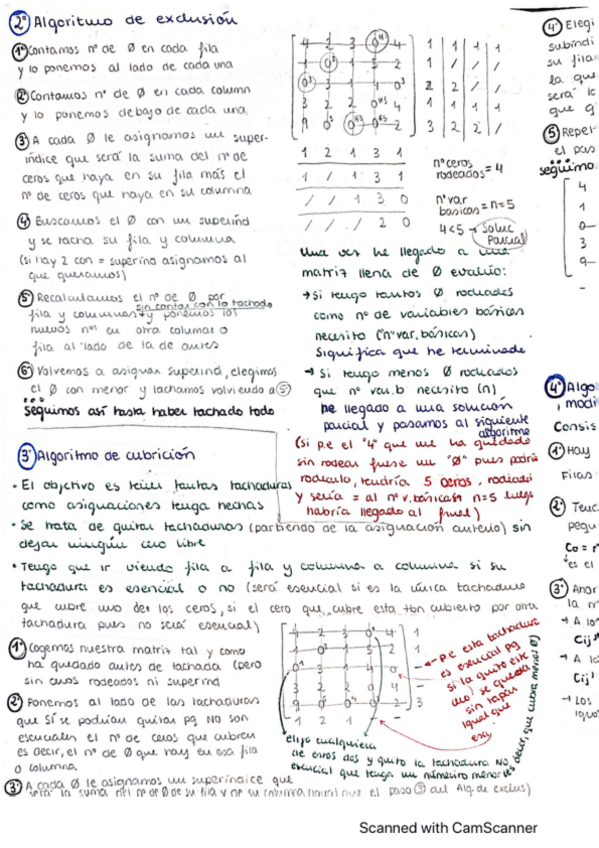 2º Algoritmo de exclusión
1º Contamos nº de Ø en cada fila
y lo ponemos al lado de cada una
2º Contamos nº de Ø en cada column
y lo ponemos debajo de cada una
3º A cada Ø le asignamos un super-
índice que será la suma del nº de
ceros que haya en su fila más el
nº de ceros que haya en su columna
4º Buscamos el Ø con un superind
y se tacha su fila y columna
(si hay 2 con = superind asignamos al
que queramos)
5º Recalculamos el nº de Ø por
sin contar con lo tachado
fila y columna y ponemos los
nuevos nos en otra columna o
fila al lado de la de antes
6º Volvemos a asignar superind, elegimos
el Ø con menor y tachamos volviendo a 5º
Seguimos así hasta haber tachado todo
1 2 1 3 1
1 / 1 3 1
/ / 1 3 0
/ / / 2 0
nº ceros
rodeados = 4
nº var
basicas = n = 5
4<5 → Soluc
Parcial
Una vez he llegado a una
matriz llena de Ø evalúo:
→ si tengo tantos Ø rodeados
como nº de variables básicas
necesito (nº var. básicas)
Significa que he terminado
→ si tengo menos Ø rodeados
que nº var.b necesito (n)
he llegado a una solución
parcial y pasamos al siguiente
algoritmo
(si p.e el "4" que me ha quedado
sin rodear fuese un "Ø" pues podría
rodearlo, tendría 5 ceros rodeados
y sería = al nº v.básicas n=5 luego
habría llegado al final)
3º Algoritmo de cubrición
• El objetivo es tener tantas tachaduras
como asignaciones tenga hechas
• Se trata de quitar tachaduras (partiendo de la asignación anterior) sin
dejar ningún cero libre
• Tengo que ir viendo fila a fila y columna a columna si su
tachadura es esencial o no (será esencial si es la única tachadura
que cubre uno de los ceros, si el cero que cubre esta tbn cubierto por otra
tachadura pues no será esencial)
1º Cogemos nuestra matriz tal y como
ha quedado antes de tachada (pero
sin ceros rodeados ni superind
2º Ponemos al lado de las tachaduras
que SÍ se podrían quitar pq NO son
esenciales el nº de ceros que cubren
es decir, el nº de Ø que hay en esa fila
o columna
3º A cada Ø le asignamos un superíndice que
será la suma del nº de Ø de su fila y de su columna (igual que el paso 3 del Alg. de exclus)
1 2 1 - -
p.e esta tachadura
es esencial pq
si la quito este
se queda
sin tapar
igual que
elijo cualquiera
de esos dos y quito la tachadura NO
esencial que tenga un número menor (es decir, que cubra menos Ø)
4º Elegi
subíndi
su fila
la que
será
que
5 Reper
el pas
seguimo
4
1
0
3
9
4º Algo
modi
Consis
1º Hay
Filas
2º
pequ
es el
3º Anot
la m
Cij
Cij
Los
igua
Scanned with CamScanner